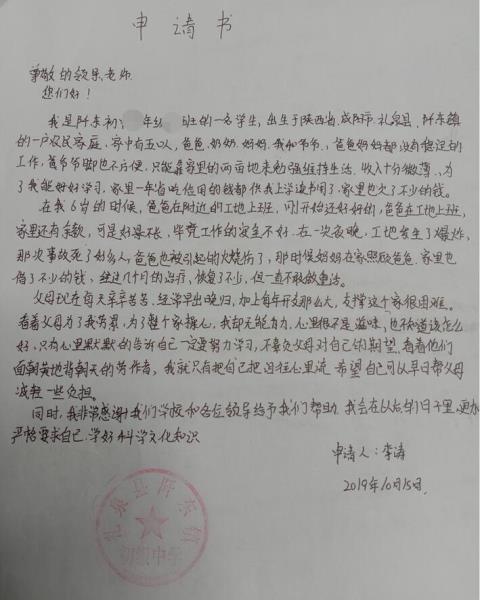 申请书
尊敬的领导、老师
您们好！
我是阡东初 年级 班的一名学生，出生于陕西省，咸阳市，礼泉县，阡东镇
的一户农民家庭，家中有五口人，爸爸、奶奶、妈妈、我和爷爷，爸爸妈妈都没有稳定的
工作，爷爷脚也不方便，只能靠家里的两亩地来勉强维持生活，收入十分微薄，为
了我能好好学习，家里一年省吃俭用的钱都供我上学读书用了，家里也欠了不少的钱。
在我6岁的时候，爸爸在附近的工地上班，刚开始还好好的，爸爸在工地上班，
家里还有余款，可是好景不长，毕竟工作的安全不好，在一次夜晚，工地发生了爆炸，
那次事故死了好多人，爸爸也被引起的火烧伤了，那时候妈妈在家照顾爸爸，家里也
借了不少的钱，经过几个月的治疗，恢复了不少，但一直不敢做重活。
父母现在每天辛辛苦苦，经常早出晚归，加上每年开支那么大，支撑这个家很困难。
看着父母为了我劳累，为了整个家操心，我却无能为力，心里很不是滋味，也不知道该怎么
好，只有心里默默的告诉自己一定要努力学习，不辜负父母对自己的期望，看着他们
面朝黄地背朝天的劳作者，我就只有把自己把泪往心里流，希望自己可以早日帮父母
减轻一些负担。
同时，我非常感谢我们学校和各位领导给予我们帮助，我会在以后的日子里，更加
严格要求自己，学好科学文化知识
申请人：李涛
2019年10月15日
礼泉县阡东镇
初级中学